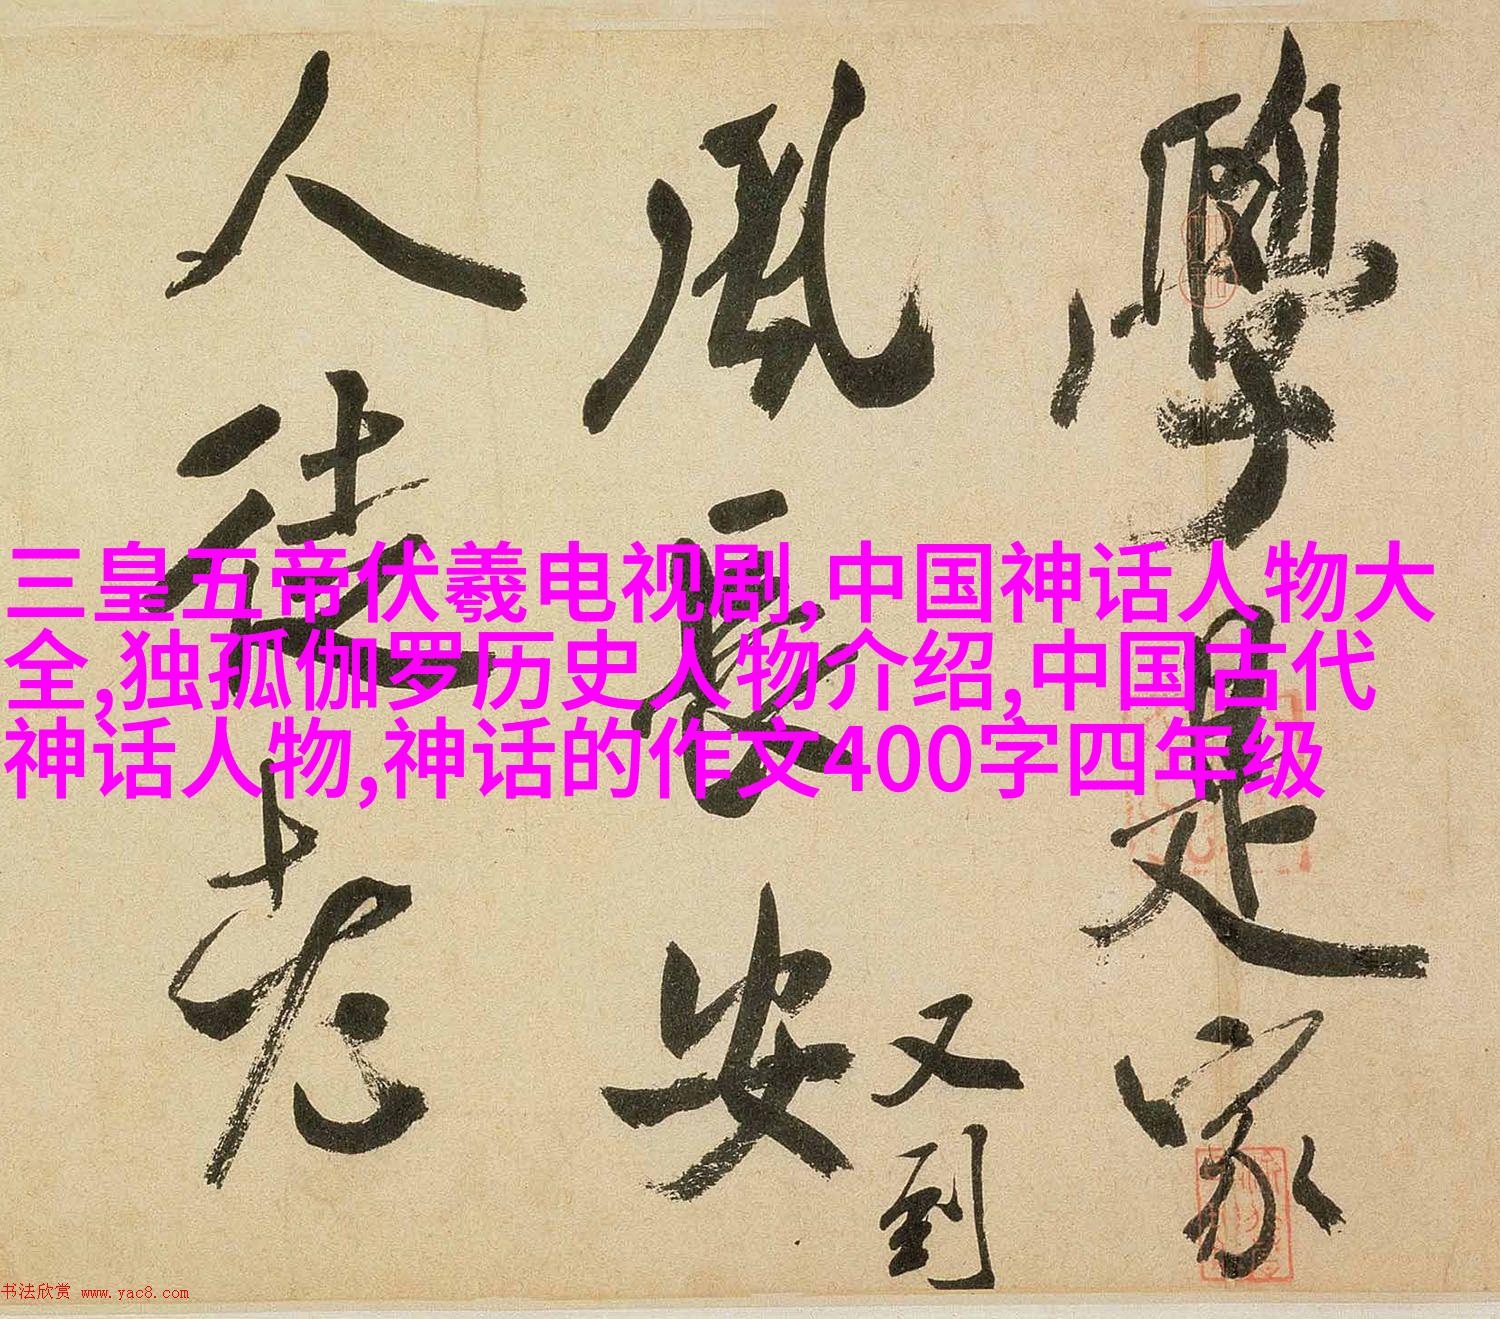 學是家
風長安
又到
人徒老
三皇五帝伏羲电视剧,中国神话人物大
全,独孤伽罗历史人物介绍,中国古代
神话人物,神话的作文400字四年级
书法欣赏 www.yac8.com